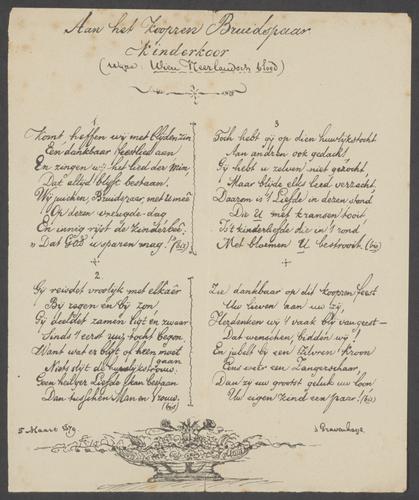 Aan het Koopren Bruidspaar.
Kinderkoor
(wijze: Wien Neerlandsch bloed)
1
Komt heffen wij met blijden zin
Een dankbaar feestlied aan
En zingen wij het lied der min,
Dat altijd blijft bestaan.
Wij juichen, Bruidspaar, met U meê
Op dezen vreugde dag
En innig rijst de kinderbeê:
"Dat God U sparen mag! (bis)
2.
Gij reisdet vroolijk met elkaêr
Bij regen en bij zon,
Gij deeldet zamen ligt en zwaar
Sinds 't eerst uw tocht begon.
Want wat er blijft of heen moet gaan
Niets slijt de
Geen heil'ger Liefde kan bestaan
Dan tusschen Man en Vrouw.
(bis)
3
Toch hebt gij op dien huwlijkstocht
Aan andren ook gedacht
Gij hebt U zelven niet gezocht,
Maar blijde elks leed verzacht.
Daarom is 't Liefde in dezen stond
Die U met kransen tooit,
Is 't kinderliefde die in 't rond
Met bloemen U bestrooit. (bis)
Zie dankbaar op dit koopren feest
Uw lieven aan uw zij,
Herdenken wij 't vaak blij van geest—
Dat wenschen bidden wij!
En jubelt bij een zilvren kroon
Eens weer een Zangerschaar,
Dan zij uw grootst geluk uw loon,
Uw eigen kind een paar! (bis)
5 Maart 1879.
's Gravenhage